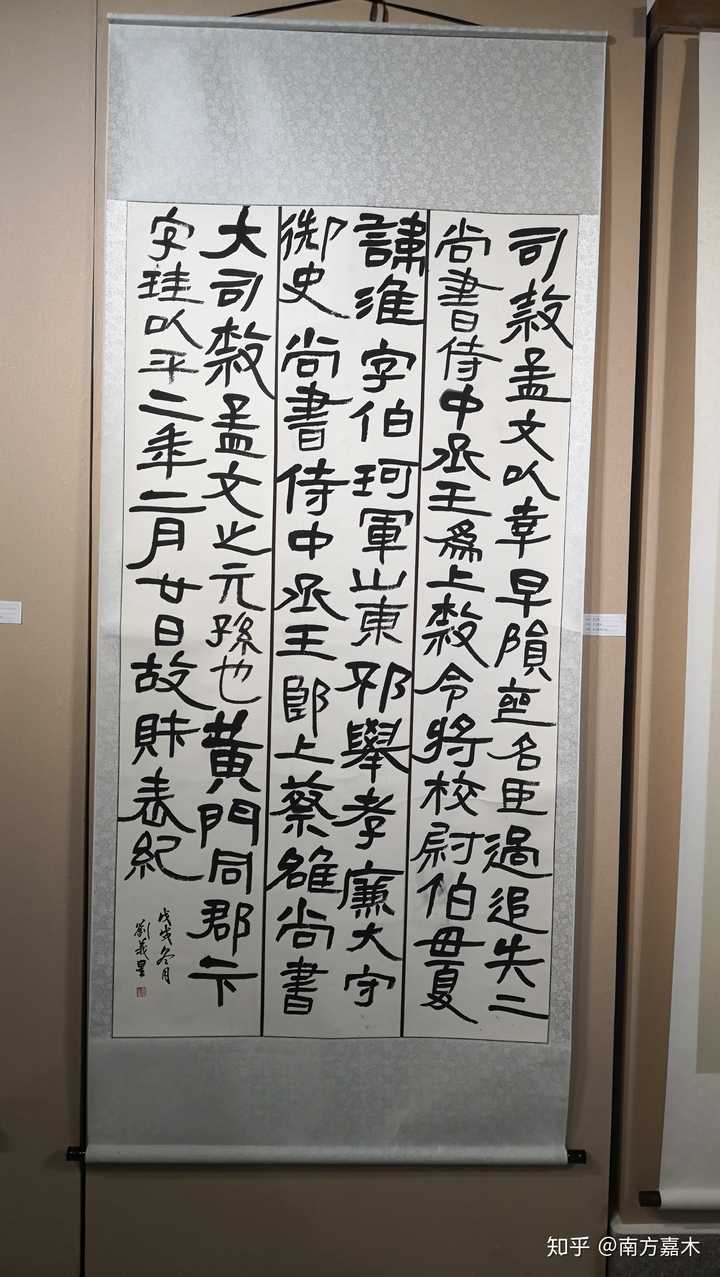 司隸孟文以幸早隕喪名臣過追失二
尚書侍中丞王爲上隸令將校尉伯毋夏
諱淮字伯珂軍山東邪舉孝廉大守
御史尚書侍中丞王郎上蔡雒尚書
大司隸孟文之元孫也黄門同郡卞
字珪以平二年二月廿日故財表紀
戊戌冬月
劉義
知乎 @南方嘉木